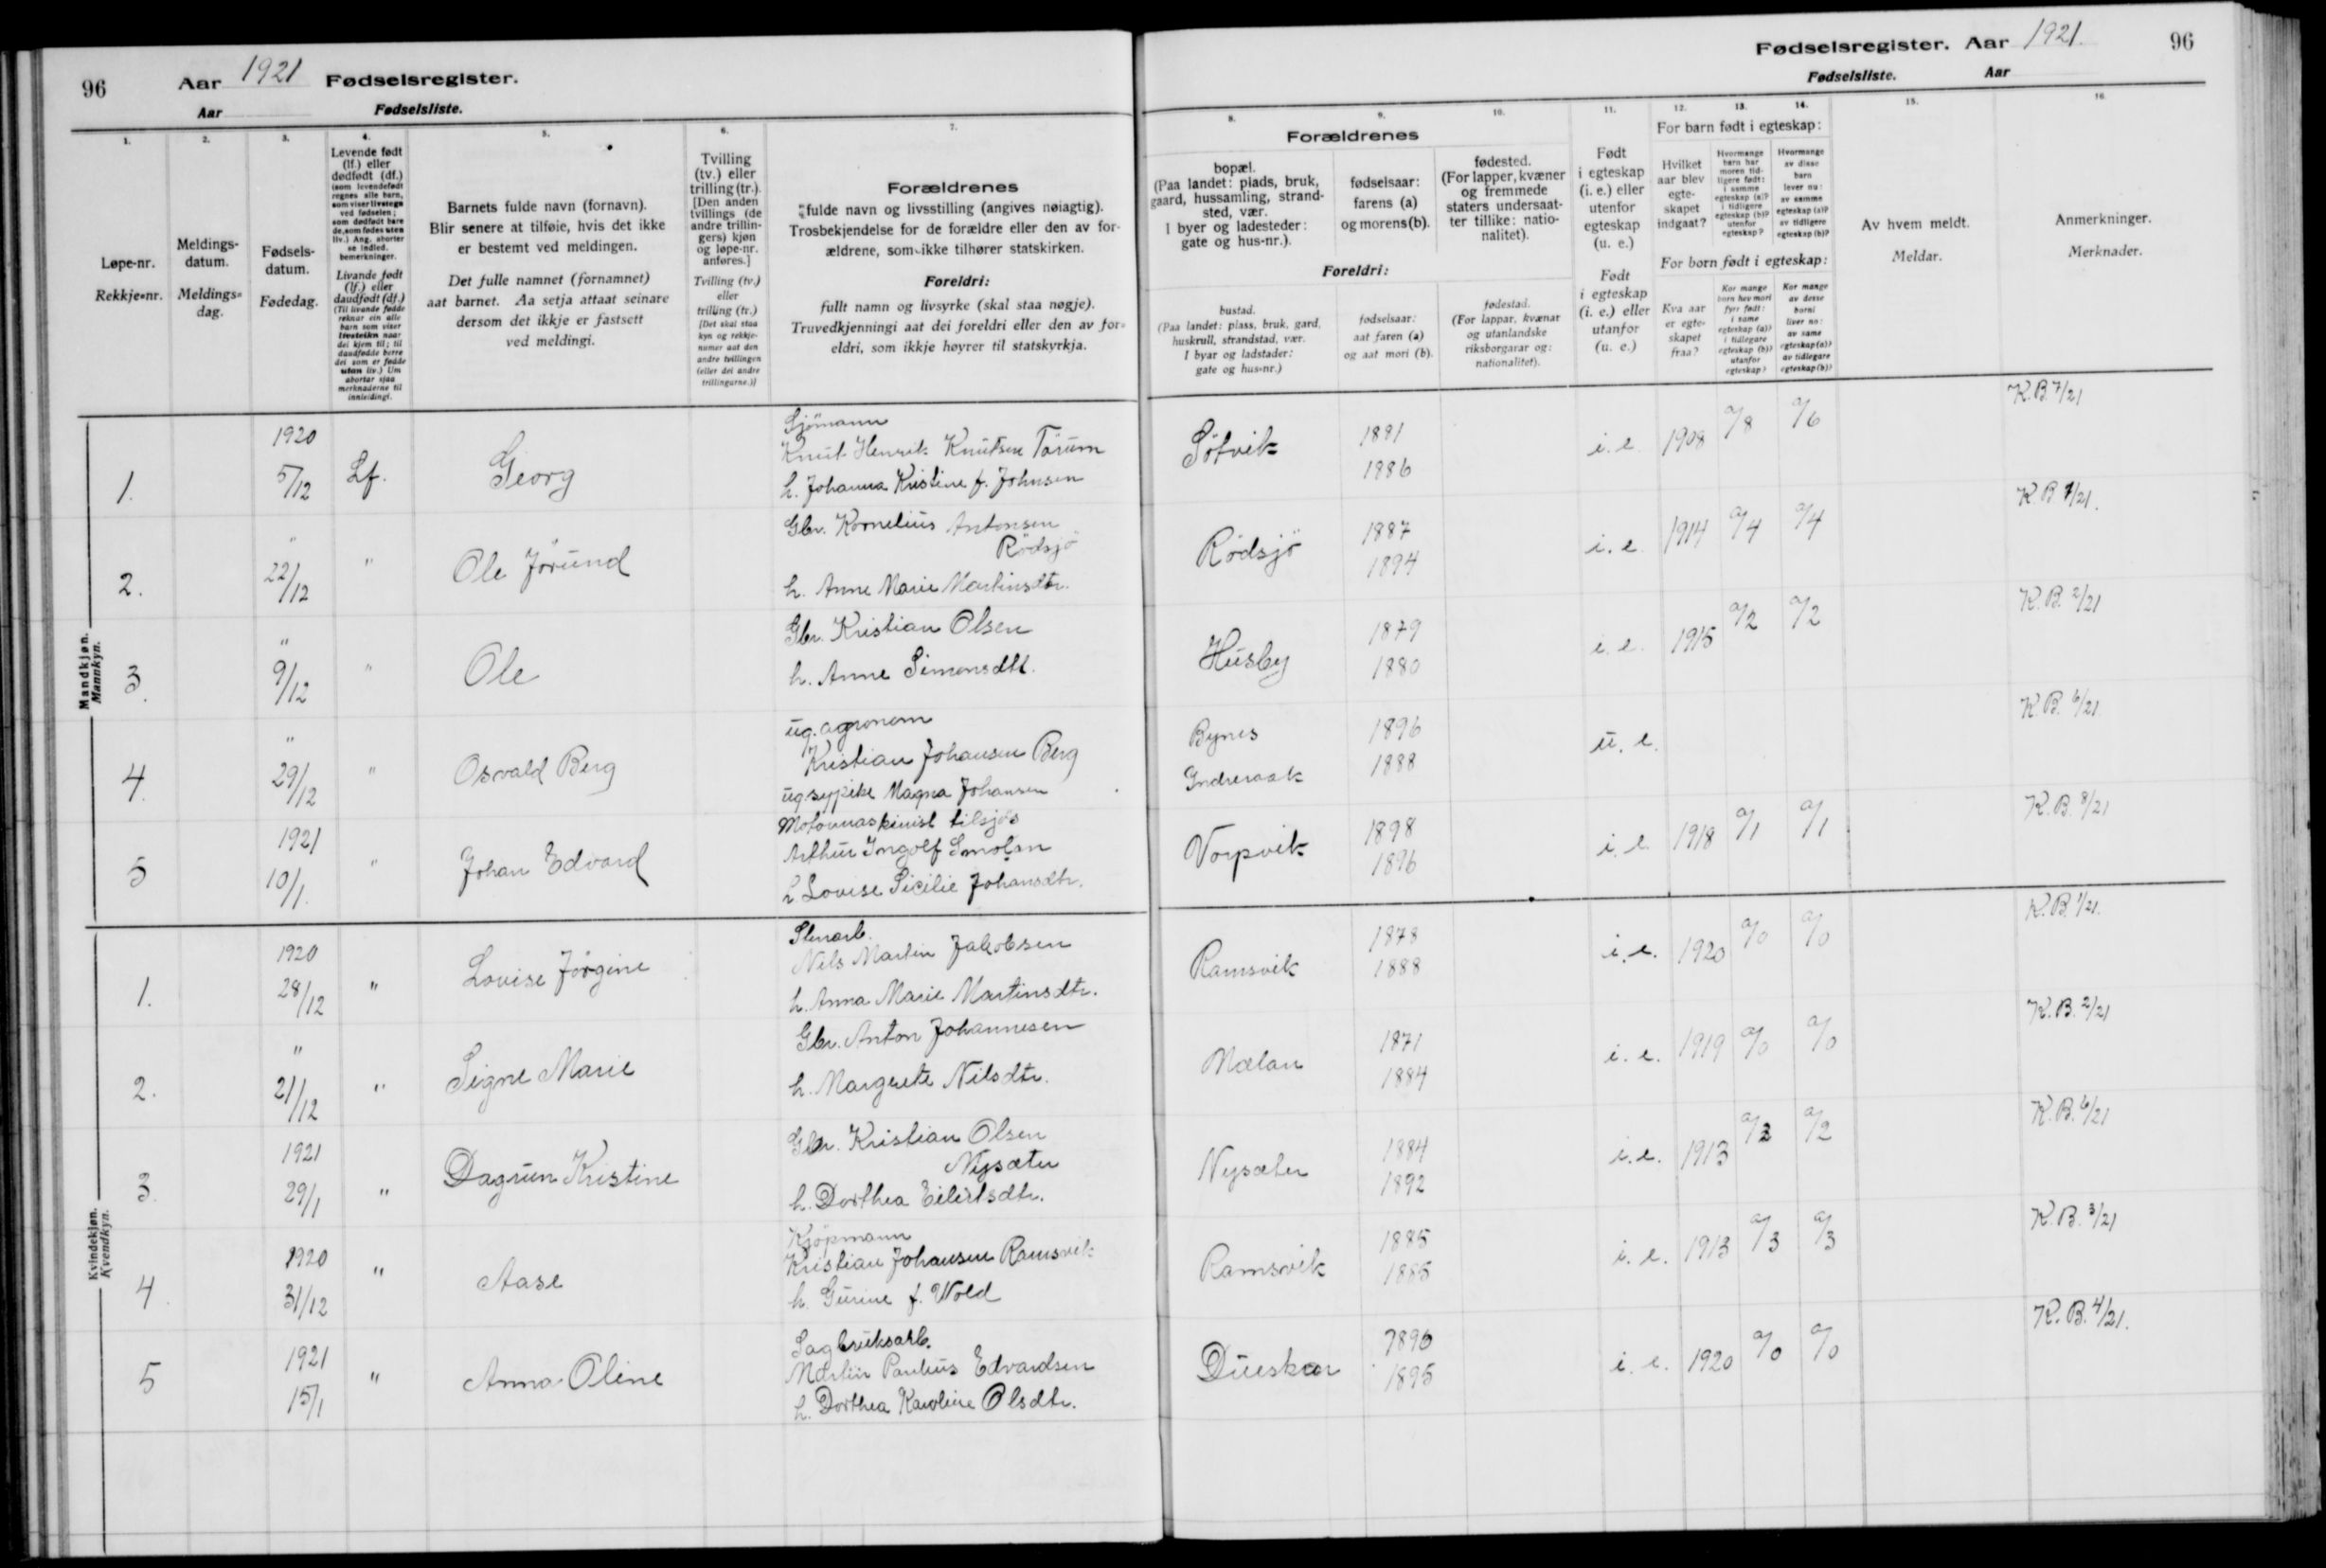 96 Aar 1921 Fødselsregister.
Aar Fødselsliste.
Fødselsregister. Aar 1921. 96
Fødselsliste. Aar
1. 2. 3. 4. 5. 6. 7. 8. 9. 10. 11. 12. 13. 14. 15. 16.
Løpe-nr.
Rekkje-nr.
Meldings-
datum.
Meldings-
dag.
Fødsels-
datum.
Fødedag.
Levende født
(lf.) eller
dødfødt (df.)
(som levendefødt
regnes alle barn,
som viser livstegn
ved fødselen;
som dødfødt bare
de, som fødes uten
liv.) Ang. aborter
se indled.
bemerkninger.
Livande født
(lf.) eller
daudfødt (df.)
(Til livande fødde
reknar ein alle
barn som viser
livsteikn naar
dei kjem til; til
daudfødde berre
dei som er fødde
utan liv.) Um
abortar sjaa
merknaderne til
innleidingi.
Barnets fulde navn (fornavn).
Blir senere at tilføie, hvis det ikke
er bestemt ved meldingen.
Det fulle namnet (fornamnet)
aat barnet. Aa setja attaat seinare
dersom det ikkje er fastsett
ved meldingi.
Tvilling
(tv.) eller
trilling (tr.).
[Den anden
tvillings (de
andre trillin-
gers) kjøn
og løpe-nr.
anføres.]
Tvilling (tv.)
eller
trilling (tr.)
[Det skal staa
kyn og rekkje-
numer aat den
andre tvillingen
(eller dei andre
trillingarne.)]
Forældrenes
fulde navn og livsstilling (angives nøiagtig).
Trosbekjendelse for de forældre eller den av for-
ældrene, som ikke tilhører statskirken.
Foreldri:
fullt namn og livsyrke (skal staa nøgje).
Truvedkjenningi aat dei foreldri eller den av for-
eldri, som ikkje høyrer til statskyrkja.
Forældrenes
bopæl.
(Paa landet: plads, bruk,
gaard, hussamling, strand-
sted, vær.
I byer og ladesteder:
gate og hus-nr.).
fødselsaar:
farens (a)
og morens(b).
fødested.
(For lapper, kvæner
og fremmede
staters undersaat-
ter tillike: natio-
nalitet).
Foreldri:
bustad.
(Paa landet: plass, bruk, gard,
huskrull, strandstad, vær.
I byar og ladstader:
gate og hus-nr.)
fødselsaar:
aat faren (a)
og aat mori (b).
fødestad.
(For lappar, kvænar
og utanlandske
riksborgarar og:
nationalitet).
Født
i egteskap
(i. e.) eller
utenfor
egteskap
(u. e.)
Født
i egteskap
(i. e.) eller
utanfor
(u. e.)
For barn født i egteskap:
Hvilket
aar blev
egte-
skapet
indgaat?
Hvormange
barn har
moren tid-
ligere født:
i samme
egteskap (a)?
i tidligere
egteskap (b)?
utenfor
egteskap?
Hvormange
av disse
barn
lever nu:
av samme
egteskap (a)?
av tidligere
egteskap (b)?
For born født i egteskap:
Kva aar
er egte-
skapet
fraa?
Kor mange
born hev mori
fyrr født:
i same
egteskap (a)?
i tidlegare
egteskap (b)?
utanfor
egteskap?
Kor mange
av desse
borni
liver no:
av same
egteskap (a)?
av tidlegare
egteskap (b)?
Av hvem meldt.
Meldar.
Anmerkninger.
Merknader.
Mandkjøn.
Mannkyn.
1. 1920 5/12 Lf. Georg
Sjömann
Knut Henrik Knutsen Tørum
h. Johanna Kristine f. Johnsen
Søtvik 1881 1886 i.e. 1908 a/8 a/6 K.B. 7/21
2. " 22/12 " Ole Jørund
Gbr. Kornelius Antonsen
Rödsjö
h. Anne Marie Martinsdtr.
Rödsjö 1887 1894 i.e. 1914 a/4 a/4 K.B 1/21.
3. " 9/12 " Ole
Gbr. Kristian Olsen
h. Anne Simonsdtt.
Husby 1879 1880 i.e. 1915 a/2 a/2 K.B. 2/21
4. " 29/12 " Osvald Berg
ug. agronom
Kristian Johansen Berg
ug sypike Magna Johansen
Bynes 1896
Inderøak 1888 u. e. K.B. 6/21
5 1921 10/1. " Johan Edvard
Motormaskinist tilsjøs
Arthur Ingolf Smolan
h Lovise Sicilie Johansdtr.
Vorpvik 1898 1896 i.e. 1918 a/1 a/1 K.B. 8/21
Kvindekjøn.
Kvendkyn.
1. 1920 28/12 " Lovise Jørgine
Stenarb.
Nils Martin Jakobsen
h. Anna Marie Martinsdtr.
Ramsvik 1878 1888 i.e. 1920 a/0 a/0 K.B. 1/21.
2. " 21/12 " Signe Marie
Gbr. Anton Johannesen
h. Margrete Nilsdtr.
Mælan 1871 1884 i.e. 1919 a/0 a/0 K.B. 2/21
3. 1921 29/1 " Dagrun Kristine
Gbr. Kristian Olsen
Nysæter
h. Dorthea Eilertsdtr.
Nysæter 1884 1892 i.e. 1913 a/2 a/2 K.B. 6/21
4. 1920 31/12 " Aase
Kjöpmann
Kristian Johansen Ramsvik
h. Gurine f. Wold
Ramsvik 1885 1885 i.e. 1913 a/3 a/3 K.B. 3/21
5 1921 15/1 " Anna Oline
Sagbruksarb.
Martin Paulius Edvardsen
h. Dorthea Karoline Olsdtr.
Dueskar 1896 1895 i.e. 1920 a/0 a/0 K.B. 4/21.